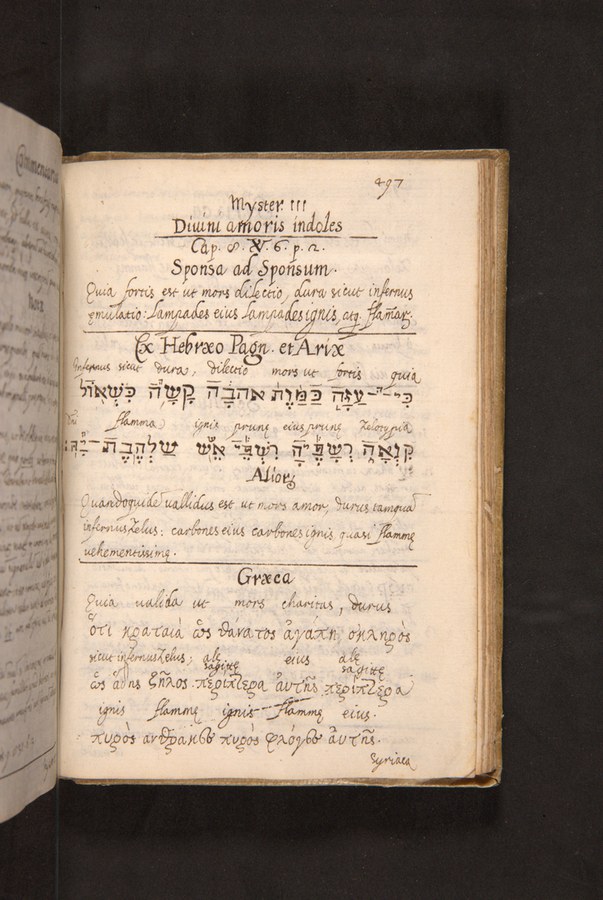 497
Myster III
Divini amoris indoles
Cap. 8. ℣. 6. p. 2.
Sponsa ad Sponsum.
Quia fortis est ut mors dilectio, dura sicut infernus
ęmulatio: lampades eius lampades ignis, atq. flamar.
Ex Hebræo Pagn. et Ariæ
Infernus sicut dura, dilectio mors ut fortis quia
כִּי־עַזָּה כַמָּוֶת אַהֲבָה קָשָׁה כִשְׁאוֹל
flamma ignis prunę eius prunę Zelotypia
קִנְאָה רְשָׁפֶיהָ רִשְׁפֵּי אֵשׁ שַׁלְהֶבֶת־יָה׃
Alior
Quandoquidē vallidus est ut mors amor, durus tamquā
infernus Zelus: carbones eius carbones ignis, quasi flammę
uehementissimę.
Græca
Quia valida ut mors charitas, durus
ὅτι κραταιά ὡς θανατος ἀγάπη σκληρὸς
sicut infernus Zelus; alę eius alę
sagittę sagittę
ὡς ἅδης ζῆλος περίπτερα ἀυτῆς περίπτερα
ignis flammę ignis flammę eius.
πυρὸς ανθρακες πυρὸς φλογες ἀυτῆς.
Syriaca